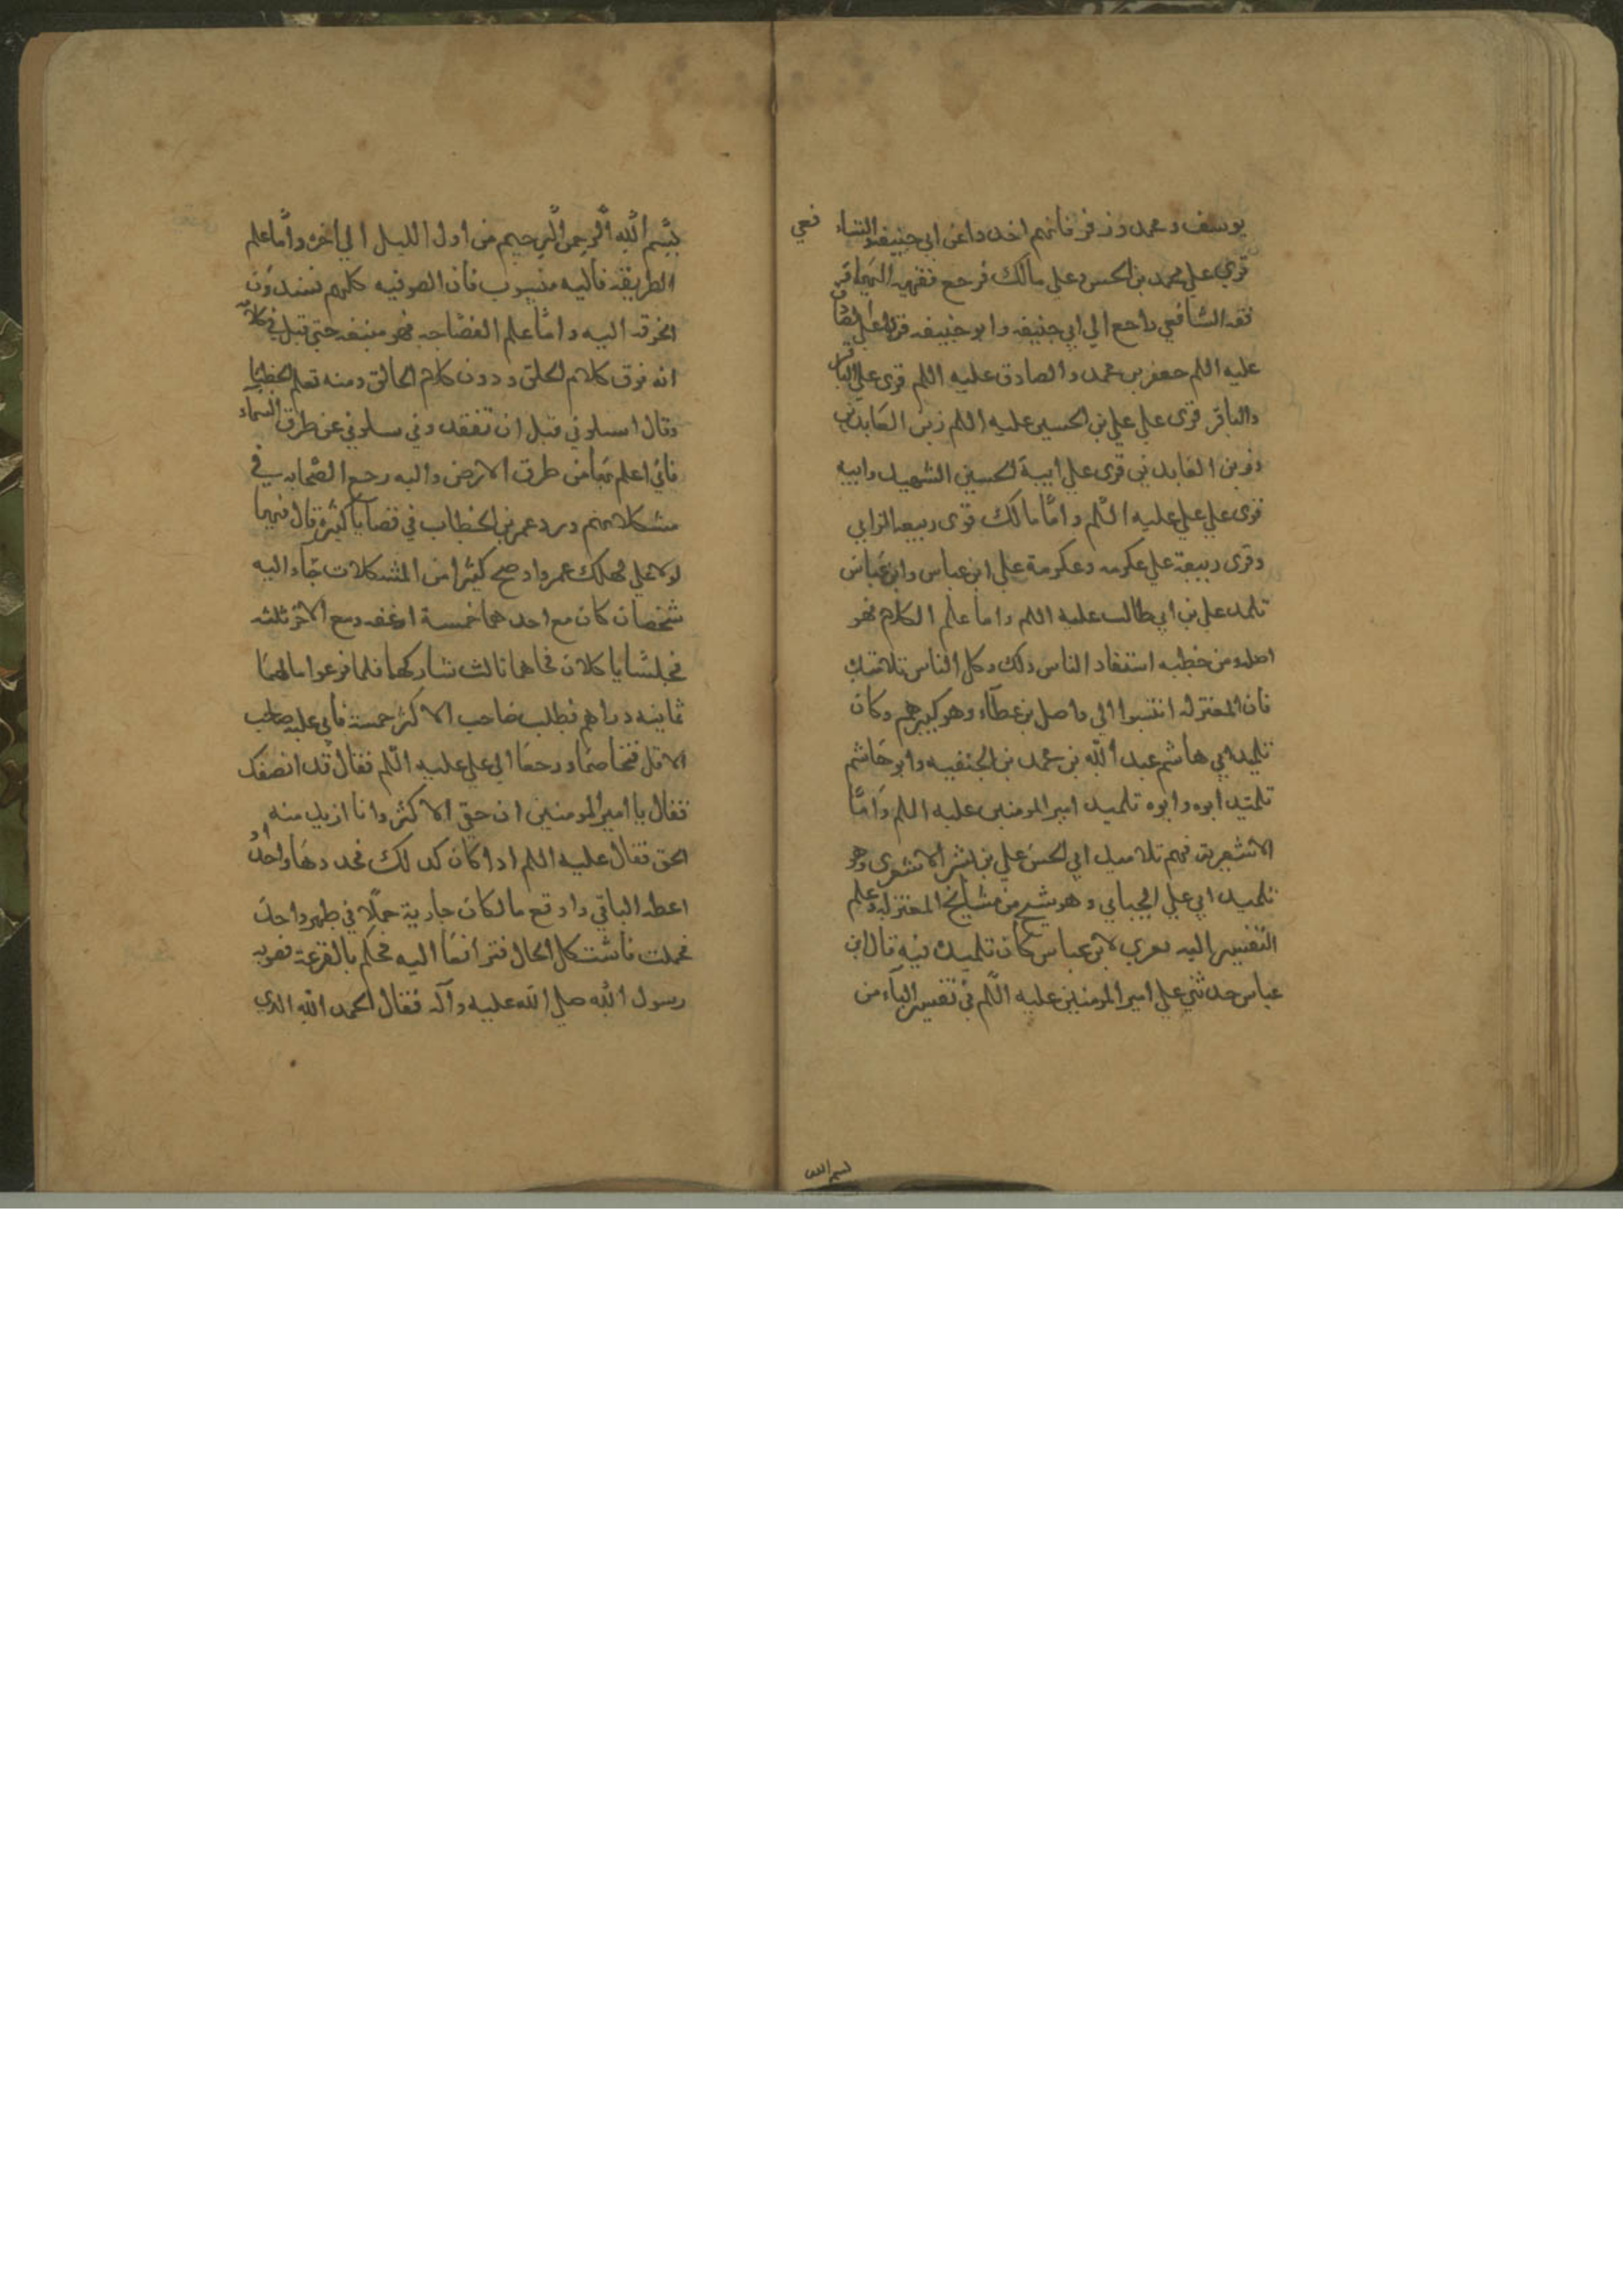 يوسف ومحمد وزفر فانهم اخذوا عن ابي حنيفه والشا فعي
قرى علي محمد بن الحسن وعلي مالك فرجع فقهه اليهما
فقه الشافعي راجع الي ابي حنيفه وابو حنيفه قرا علي الصادق
عليه السلم جعفر بن محمد والصادق عليه السلم قرى علي الباقر
والباقر قرى علي علي بن الحسين عليه السلم زين العابدين
وزين العابدين قرى علي ابيه الحسين الشهيد وابيه
قرى علي علي عليه السلم واما مالك قرى ربيعه الرابي
وقرى ربيعة علي عكرمه وعكرمة علي ابن عباس وابن عباس
تلمد علي بن ابي طالب عليه السلم واما علم الكلام فهو
اصله ومن خطبه استفاد الناس ذلك وكل الناس تلامتيك
فان المعتزله انتسبوا الي واصل بن عطاء وهو كبيرهم وكان
تلميد ابي هاشم عبد الله بن محمد بن الحنفيه وابو هاشم
تلميد ابوه وابوه تلميد امير المومنين عليه السلم واما
الاشعريه فهم تلاميد ابي الحسن علي بن بشر الاشعرى وهو
تلميد ابي علي الجباي وهو شيخ من مشايخ المعتزله وعلم
التفسير اليه يعزي لابن عباس كان تلميده فيه قال ابن
عباس حدثني علي امير المومنين عليه السلم في تفسير الباء من
بسم الله
بسم الله الرحمن الرحيم من اول الليل الي اخره واما علم
الطريقه فاليه منسوب فان الصوفيه كلهم يسندون
الخرقه اليه واما علم الفصاحه فهو منبعه حتى قيل في كلامه
انه فوق كلام الخلق ودون كلام الخالق ومنه تعلم الخطبا
وقال اسلوني قبل ان تفقدوني سلوني عن طرق السماء
فاني اعلم بها من طرق الارض واليه رجع الصحابه في
مشكلاتهم ورد عمر بن الخطاب في قضايا كثيره قال فيها
لولا علي لهلك عمر واوضح كثيرا من المشكلات جاء اليه
شخصان كان مع احدهما خمسة ارغفه ومع الاخر ثلثه
فجلسا ياكلان فجاهما ثالث شاركهما فلما فرعوا مالهما
ثمانيه دراهم فطلب صاحب الاكثر خمسة فابي عليه صاحب
الاقل فتخاصما ورجعا الي علي عليه السلم فقال قد انصفك
فقال يا امير المومنين ان حقي الاكثر وانا اريد منه
الحق فقال عليه السلم ادا كان كدلك فخد درهما واحدا و
اعطه الباقي واوقع مالكان جارية جهلا في طهر واحد
فحملت فاشتكل الحال فترافعا اليه فحكم بالقرعة فصوبه
رسول الله صلي الله عليه وآله فقال الحمد لله الدي